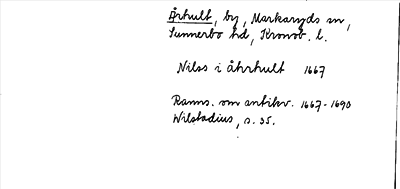 Århult, by, Markaryds sn,
Sunnerbo hd, Kronob. l.
Nilss i åhrhult 1667
Ranns. om antikv. 1667-1690
Wilstadius, s. 35.